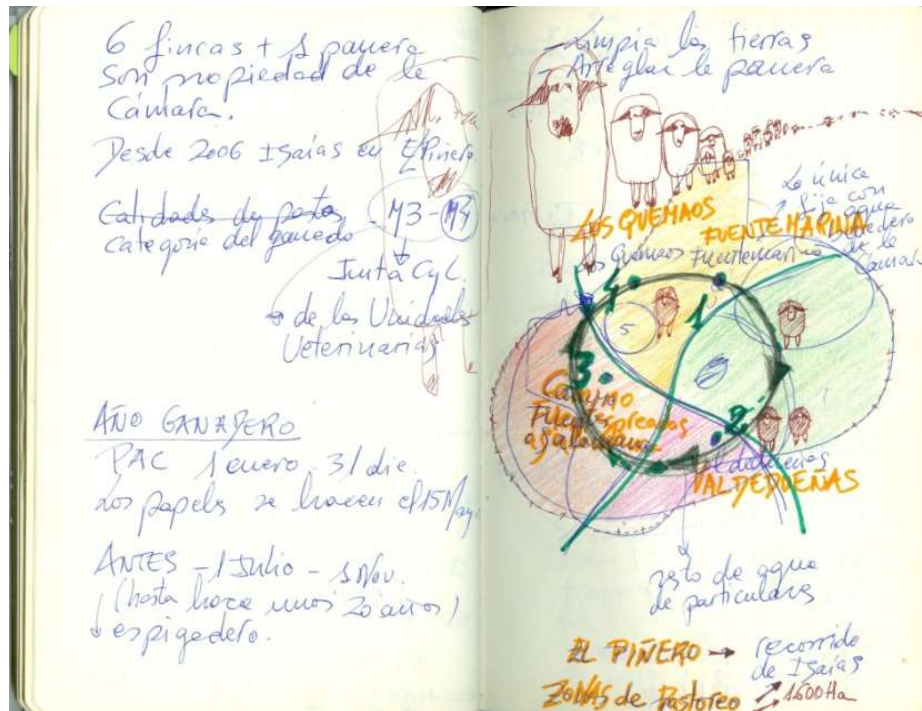 6 fincas + 1 panera
son propiedad de la
Cámara.
Desde 2006 Isaías en El Piñero
Calidades de pastos - M3 - M4
categoría del ganado
Junta CyL
→ de las Unidades
Veterinarias
AÑO GANADERO
PAC 1 enero - 31 dic.
Los papeles se hacen el 15 May.
ANTES - 1 Julio - 1 Nov.
(hasta hace unos 20 años)
espigadero.
- Limpia las tierras
- Arreglar la panera
La única
fija con
agua
de la
Cámara
LOS QUEMAOS
FUENTEMARINA
Los Quemaos Fuentemarina
4
1
5
3.
.2
Camino
Fuentespreadas
Valdedueñas
VALDEDUEÑAS
resto de agua
de particulares
EL PIÑERO → recorrido
de Isaías
ZONAS de Pastoreo 1600 Ha